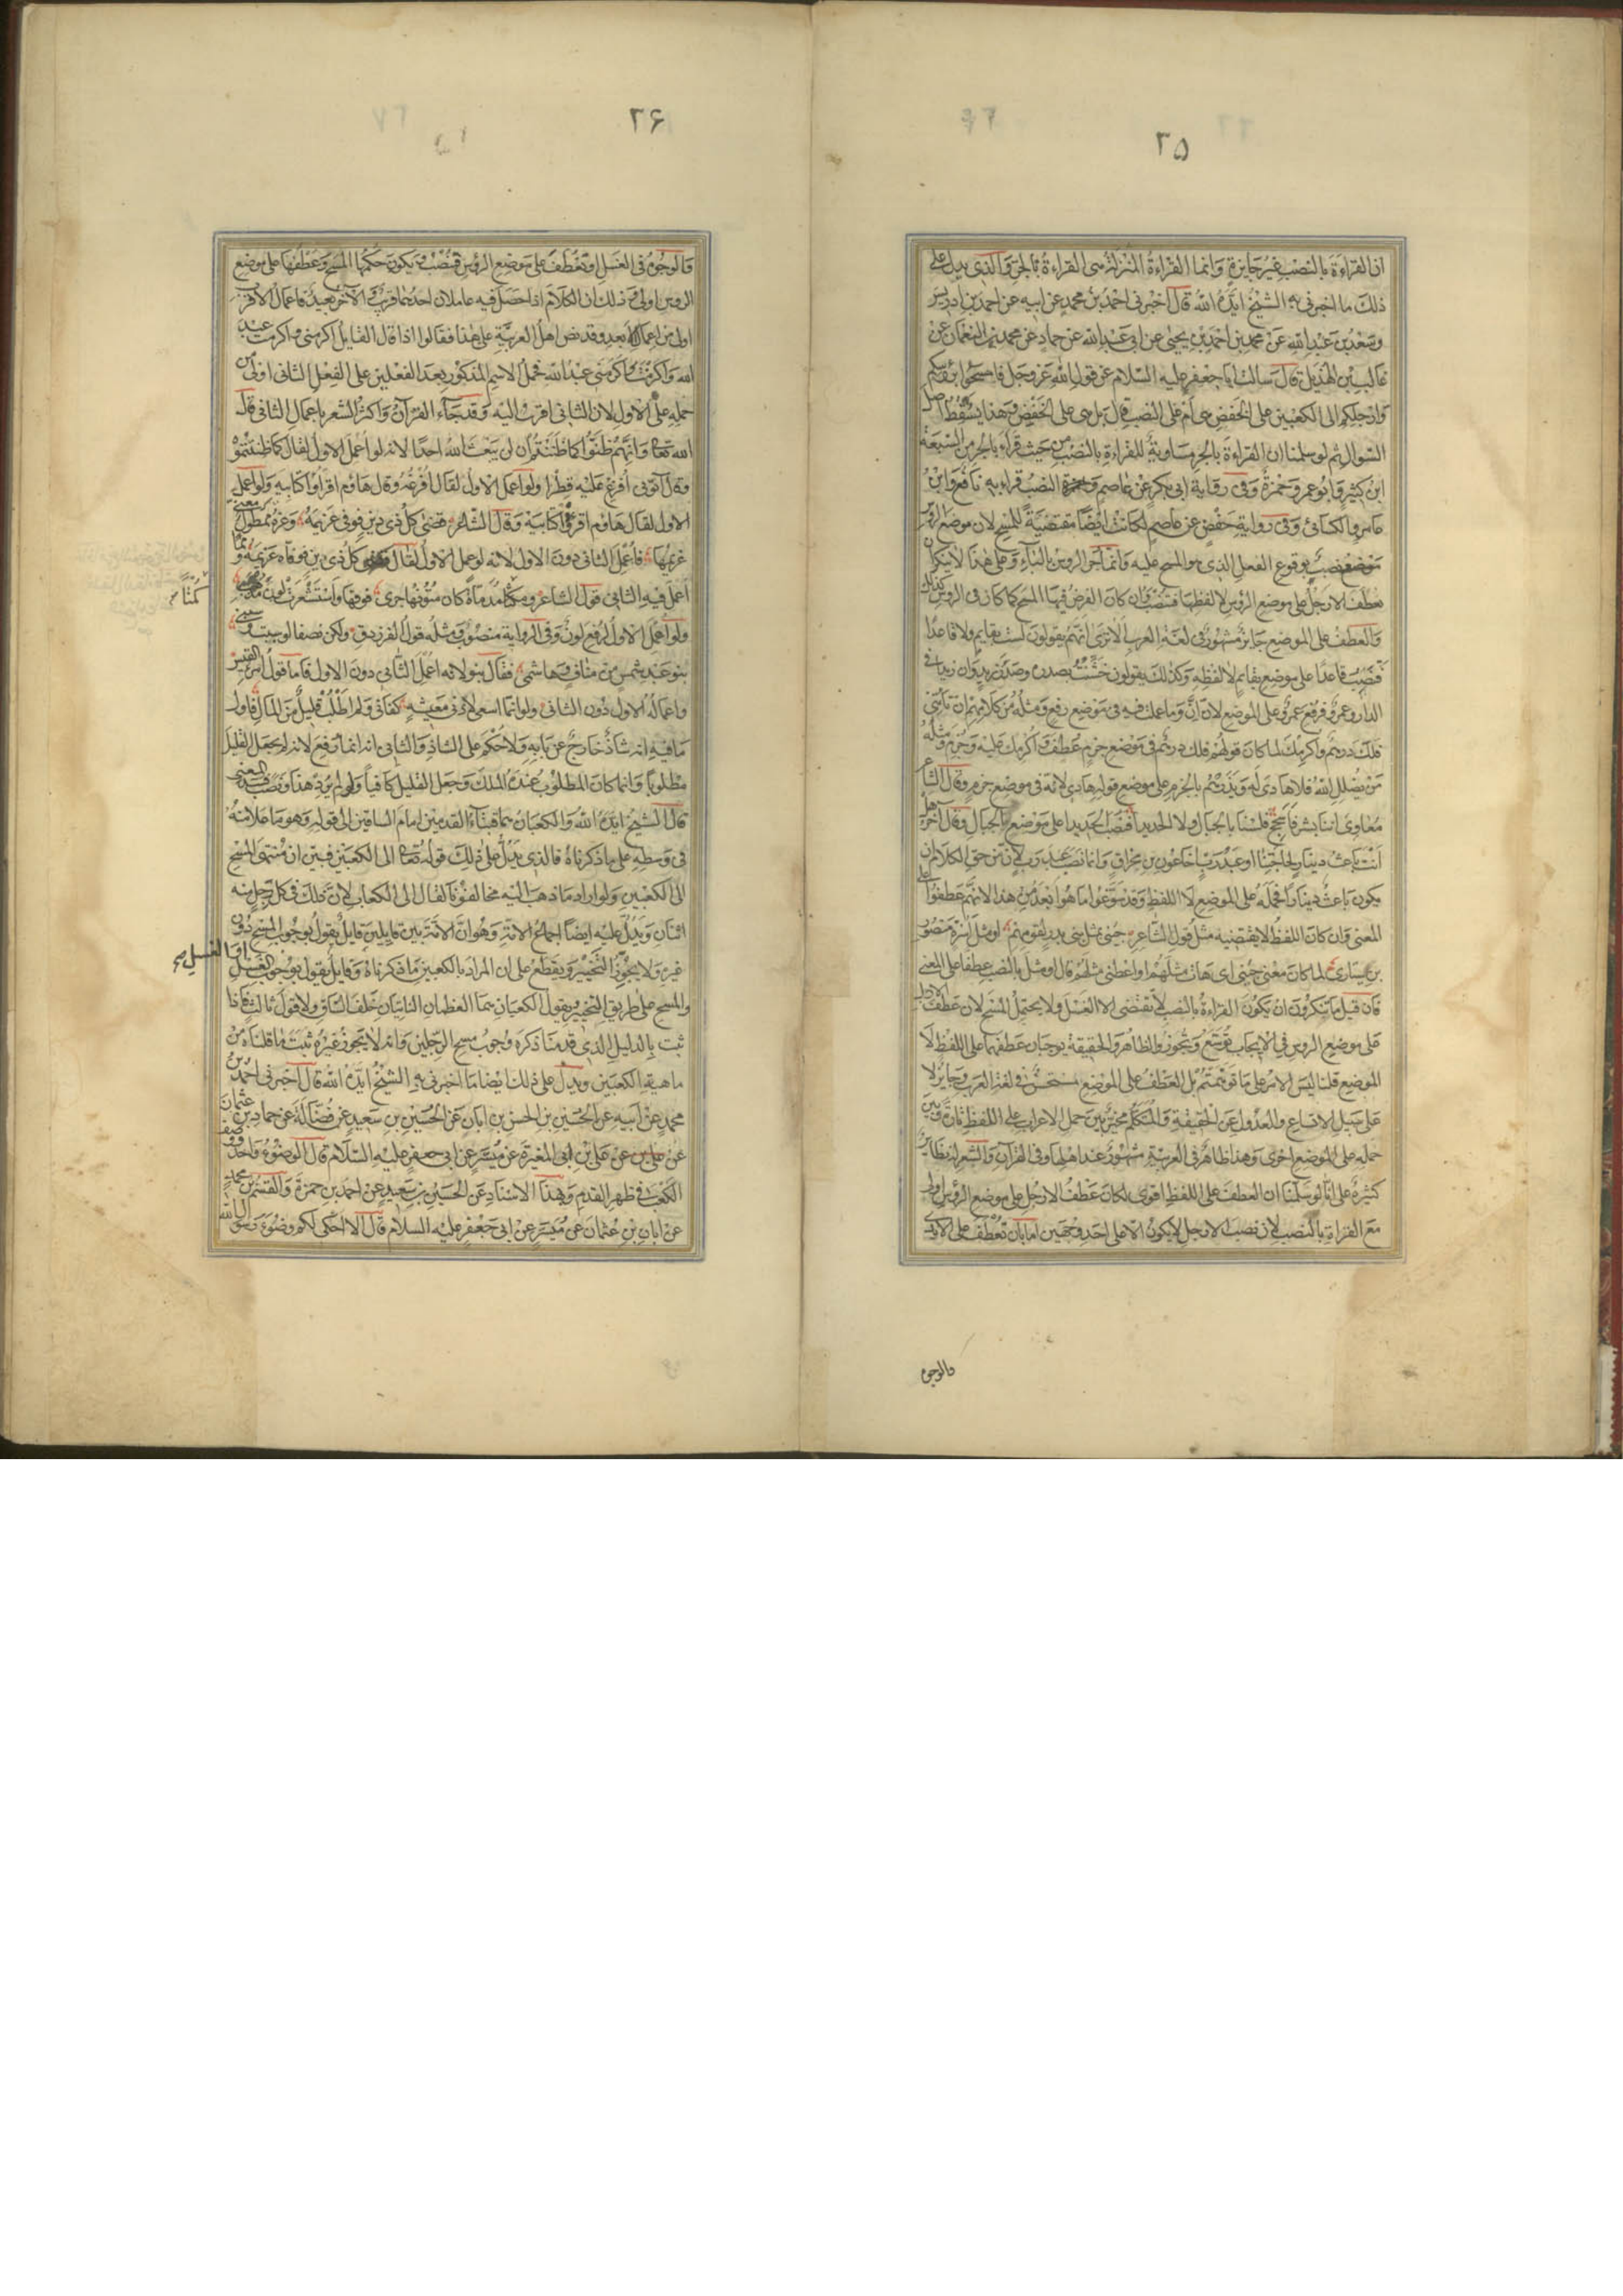 ٢٥
ان القراءة بالنصب غير جايزة وانما القراءة المنزلة هى القراءة بالجر والذى يدل على
ذلك ما اخبرنى به الشيخ ايده الله قال اخبرنى احمد بن محمد عن ابيه عن احمد بن ادريس
وسعد بن عبد الله عن محمد بن احمد بن يحيى عن ابى عبد الله عن حماد عن محمد بن النعمان عن
غالب بن الهذيل قال سالت ابا جعفر عليه السلام عن قول الله عز وجل فامسحوا برؤسكم
وارجلكم الى الكعبين على الخفض هى ام على النصب قال بل هى على الخفض وهذا يسقط اصل
السؤال ثم لو سلمنا ان القراءة بالجر مساوية للقراءة بالنصب من حيث قراء بالجر من السبعة
ابن كثير وابو عمرو وحمزة وفى رواية ابى بكر عن عاصم و النصب قراء به نافع وابن
عامر والكسائى وفى رواية حفص عن عاصم لكانت ايضا مقتضية للمسح لان موضع الرؤس
موضع نصب بوقوع الفعل الذى هو المسح عليه وانما جر الرؤس بالباء وعلى هذا لا ينكر ان
يعطف الارجل على موضع الرؤس لا لفظها فتنصب وان كان الفرض فيها المسح كما كان فى الرؤس كذلك
والعطف على الموضع جايز مشهور فى لغة العرب الا ترى انهم يقولون لست بقايم ولا قاعدا
فنصب قاعدا على موضع بقايم لا لفظه وكذلك يقولون خشنت بصدره وصدر زيد وان زيدا فى
الدار وعمرو فرفع عمرو على الموضع لان ان وما عملت فيه فى موضع رفع ومثله من كلامهم ان تأتنى
فلك درهم واكرمك لما كان قولهم فلك درهم فى موضع جزم عطف واكرمك عليه وجزم ومثله
من يضلل الله فلا هادى له ويذرهم بالجزم على موضع قوله هادى لانه فى موضع جزم وقال الشاعر
معاوى اننا بشر فاسجح فلسنا بالجبال ولا الحديدا فنصب الحديدا على موضع بالجبال وقال آخر هل
انت باعث دينار لحاجتنا او عبد رب اخا عون بن مخراق وانما نصب عبد رب لان من حق الكلام ان
يكون باعث دينارا فحمله على الموضع لا اللفظ وقد سوغوا ما هو ابعد من هذا لانهم عطفوا على
المعنى وان كان اللفظ لا يقتضيه مثل قول الشاعر جئنى بمثل بنى بدر لقومهم او مثل اسرة منصور
بن سيار لما كان معنى جئنى اى هات مثلهم او اعطنى مثلهم قال او مثل بالنصب عطفا على المعنى
فان قيل ما تنكرون ان يكون القراءة بالنصب لا تقتضى الا الغسل ولا يحتمل المسح لان عطف الارجل
على موضع الرؤس فى الايجاب توسع وتجوز والظاهر والحقيقة يوجبان عطفها على اللفظ لا
الموضع قلنا ليس الامر على ما توهمتم بل العطف على الموضع مستحسن فى لغة العرب وجايز لا
على سبيل الاتساع والعدول عن الحقيقة والمتكلم مخير بين حمل الاعراب على اللفظ تارة وبين
حمله على الموضع اخرى وهذا ظاهر فى العربية مشهور عند اهلها وفى القرآن والشعر له نظاير
كثيرة على انا لو سلمنا ان العطف على اللفظ اقوى لكان عطف الارجل على موضع الرؤس اولى
مع القراءة بالنصب لان نصب الارجل لا يكون الا على احد وجهين اما بان تعطف على الايدى
فالوجوه
٢۶
فالوجوه فى الغسل او تعطف على موضع الرؤس فتنصب ويكون حكمها المسح وعطفها على موضع
الرؤس اولى وذلك ان الكلام اذا حصل فيه عاملان احدهما قريب والآخر بعيد فاعمال الاقرب
اولى من اعمال الابعد وقد نص اهل العربية على هذا فقالوا اذا قال القايل اكرمنى واكرمت عبد
الله واكرمت واكرمنى عبد الله فحمل الاسم المذكور بعد الفعلين على الفعل الثانى اولى من
حمله على الاول لان الثانى اقرب اليه وقد جاء القرآن واكثر الشعر باعمال الثانى قال
الله تعالى وانهم ظنوا كما ظننتم ان لن يبعث الله احدا لانه لو اعمل الاول لقال كما ظننتموه
وقال آتونى افرغ عليه قطرا ولو اعمل الاول لقال افرغه وقال هاؤم اقرؤا كتابيه ولو اعمل
الاول لقال هاؤم اقرؤه كتابيه وقال الشاعر قضى كل ذى دين فوفى غريمه وعزة ممطول معنى
غريمها فاعمل الثانى دون الاول لانه لو عمل الاول لقال كل ذى دين فوفاه غريمه ومما
اعمل فيه الثانى قول الشاعر وكمتا مدماة كان متونها جرى فوقها واستشعرت لون مذهب
كمتا صح
ولو اعمل الاول لرفع لون وفى الرواية منصوب ومثله قول الفرزدق ولكن نصفا لو سببت وسبنى
بنو عبد شمس من مناف وهاشم فقال بنو لانه اعمل الثانى دون الاول فاما قول امرئ القيس
واعماله الاول دون الثانى ولو انما اسعى لادنى معيشة كفانى ولم اطلب قليل من المال فاول
ما فيه انه شاذ خارج عن بابه ولا حكم على الشاذ والثانى انه انما رفع لانه لم يجعل القليل
مطلوبا وانما كان المطلوب عنده الملك وجعل القليل كافيا ولو لم يرد هذا ونصب فسد المعنى
قال الشيخ ايده الله والكعبان هما قبتا القدمين امام الساقين الى قوله وهو ما علا منه
فى وسطه على ما ذكرناه فالذى يدل على ذلك قوله تعالى الى الكعبين فبين ان منتهى المسح
الى الكعبين ولو اراد ما ذهب اليه مخالفونا لقال الى الكعاب لان ذلك فى كل رجل منه
اثنان ويدل عليه ايضا اجماع الامة وهو ان الامة بين قايلين قايل يقول بوجوب المسح دون
غيره ولا يجوز التخيير ويقطع على ان المراد بالكعبين ما ذكرناه وقايل يقول بوجوب الغسل
او الغسل صح
والمسح على طريق التخيير ويقول الكعبان هما العظمان الناتيان خلف الساق ولا قول ثالث فاذا
ثبت بالدليل الذى قدمنا ذكره وجوب مسح الرجلين وانه لا يجوز غيره ثبت ما قلناه من
ماهية الكعبين ويدل على ذلك ايضا ما اخبرنى به الشيخ ايده الله قال اخبرنى احمد بن
محمد عن ابيه عن الحسين بن الحسن بن ابان عن الحسين بن سعيد عن فضالة عن حماد بن عثمان
عن على بن ابى المغيرة عن ميسر عن ابى جعفر عليه السلام قال الوضوء واحد ووصف
الكعب فى ظهر القدم وبهذا الاسناد عن الحسين بن سعيد عن احمد بن حمزة والقسم بن محمد
عن ابان بن عثمان عن ميسر عن ابى جعفر عليه السلام قال الا احكى لكم وضوء رسول الله